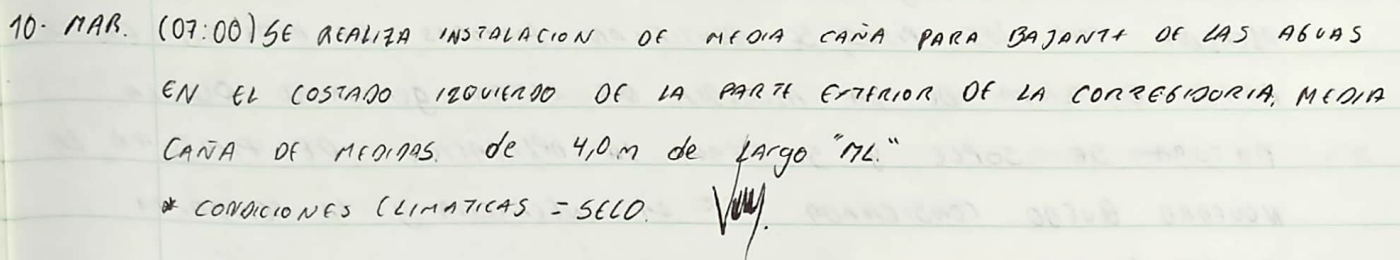 10. MAR. (07:00) SE REALIZA INSTALACION DE MEDIA CAÑA PARA BAJANTE DE LAS AGUAS
EN EL COSTADO IZQUIERDO DE LA PARTE EXTERIOR DE LA CORREGIDORIA, MEDIA
CAÑA DE MEDIDAS. de 4,0 m de largo "ML."
* CONDICIONES CLIMATICAS = SECO.